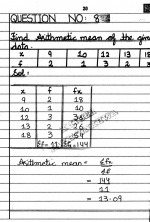 20
QUESTION NO: 8
Find Arithmetic mean of the given
data.
x 9 10 12 13 18
f 2 1 3 2 3
Sol:
x f fx
9 2 18
10 1 10
12 3 36
13 2 26
18 3 54
Σf = 11 Σfx = 144
Arithmetic mean = Σfx
Σf
= 144
11
= 13.09